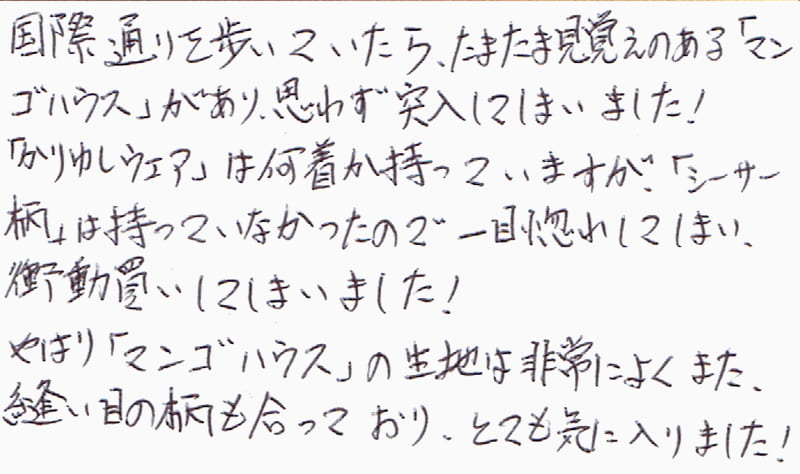 国際通りを歩いていたら、たまたま見覚えのある「マン
ゴハウス」があり、思わず突入してしまいました!
「かりゆしウェア」は何着か持っていますが、「シーサー
柄」は持っていなかったので一目惚れしてしまい、
衝動買いしてしまいました!
やはり「マンゴハウス」の生地は非常によくまた、
縫い目の柄も合っており、とても気に入りました!